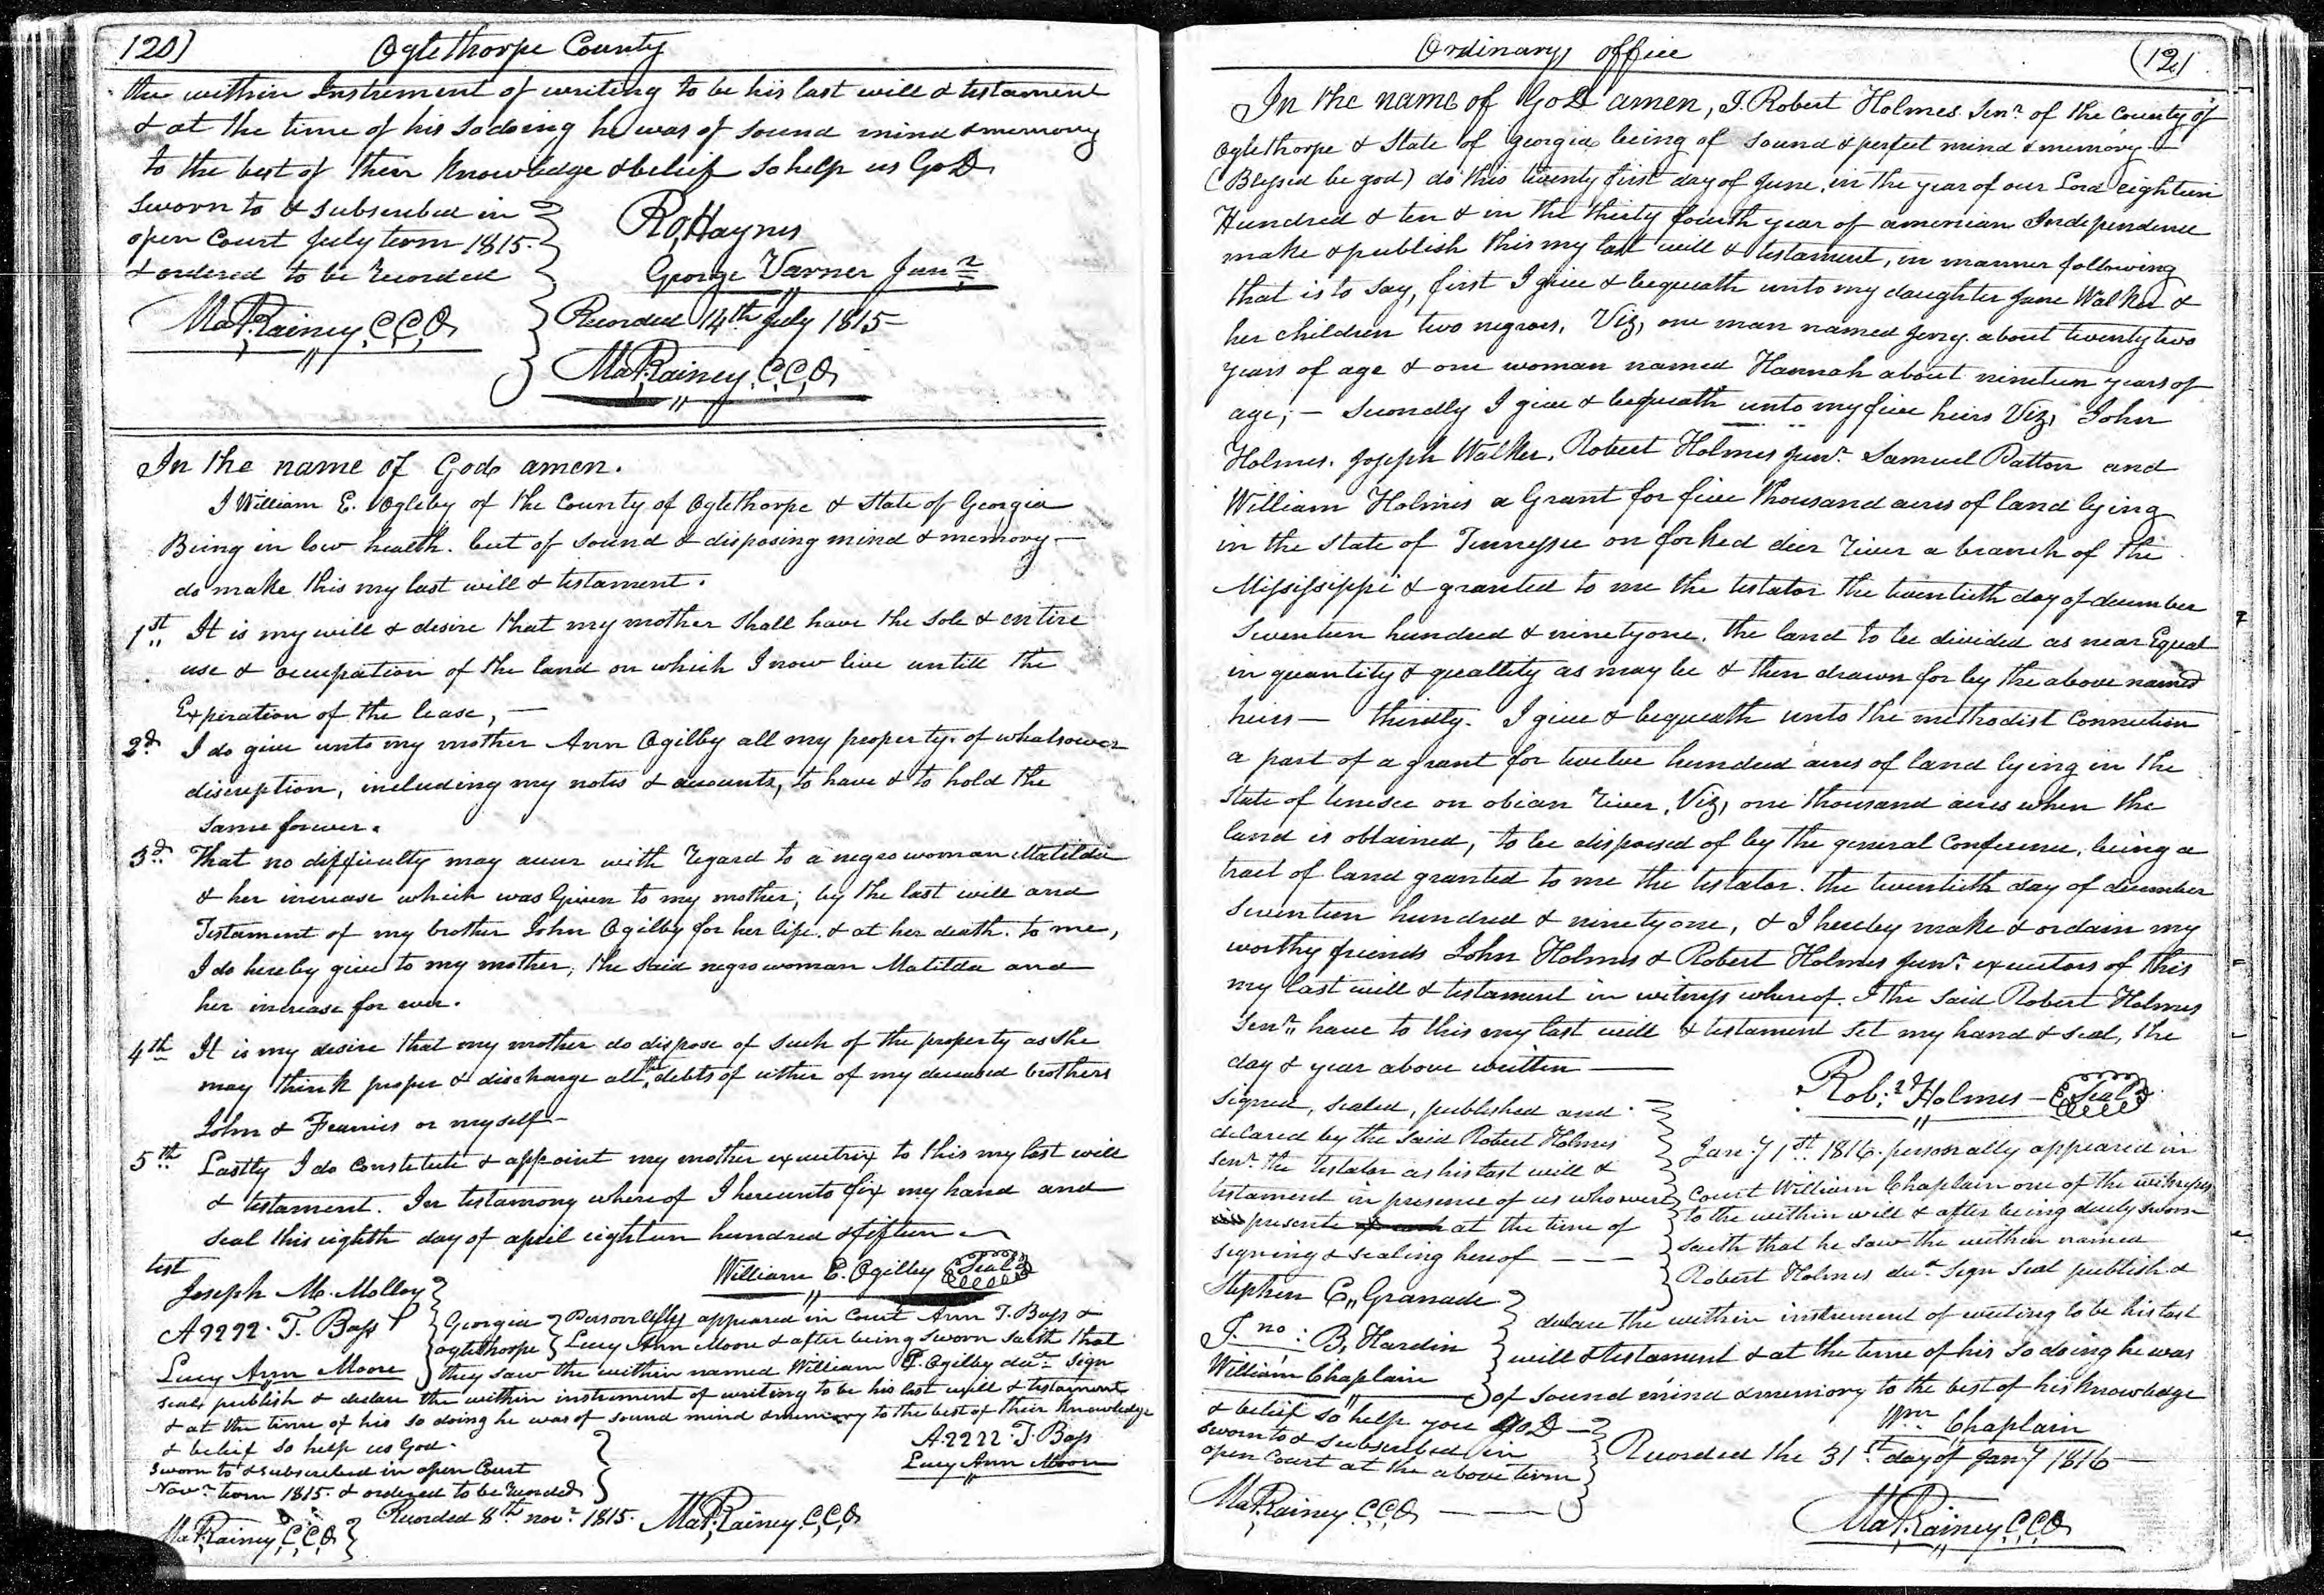 120]
Oglethorpe County
the within Instrument of writing to be his last will & testament
& at the time of his so doing he was of sound mind & memory
to the best of their knowledge & belief so help us GoD
Sworn to & subscribed in
open Court July term 1815.
& ordered to be recorded
Mat. Rainey C.C.O.
Ro. Haynes
George Varner Junr
Recorded 14th July 1815
Mat. Rainey C.C.O.
In the name of God amen.
I William E. Ogleby of the County of Oglethorpe & State of Georgia
Being in low health. but of sound & disposing mind & memory
do make this my last will & testament.
1st It is my will & desire that my mother shall have the sole & entire
use & occupation of the land on which I now live untill the
Expiration of the lease, —
2d I do give unto my mother Ann Ogilby all my property of whatsoever
discription, including my notes & accounts, to have & to hold the
same forever.
3d That no difficulty may accur with regard to a negro woman Matilda
& her increase which was given to my mother; by the last will and
Testament of my brother John Ogilby for her life. & at her death. to me,
I do hereby give to my mother; the said negro woman Matilda and
her increase for ever.
4th It is my desire that my mother do dispose of such of the property as she
may think proper & discharge all the debts of either of my deceased brothers
John & Francis or myself —
5th Lastly I do Constitute & appoint my mother executrix to this my last will
& testament. In testamony whereof I hereunto fix my hand and
seal this eighth day of april eighteen hundred & fifteen
test
William E. Ogilby Seal
Joseph M. Molloy
A2222. T. Bass
Lucy Ann Moore
Georgia
Oglethorpe
Personally appeared in Court Ann T. Bass &
Lucy Ann Moore & after being sworn saith that
they saw the within named William E. Ogilby decd sign
seal, publish & declare the within instrument of writing to be his last will & testament
& at the time of his so doing he was of sound mind & memory to the best of their knowledge
& belief so help us God.
A.2222. T. Bass
Lucy Ann Moore
Sworn to & subscribed in open Court
Novr term 1815. & ordered to be recorded
Recorded 8th novr 1815. Mat. Rainey C.C.O.
Mat. Rainey C.C.O.
Ordinary office
(121
In the name of GoD amen, I. Robert Holmes Senr of the County of
Oglethorpe & State of Georgia being of sound & perfect mind & memory
(Blessed be god) do this twenty first day of June. in the year of our Lord eighteen
Hundred & ten & in the thirty fourth year of american Independence
make & publish this my last will & testament, in manner following
that is to say, first I give & bequeath unto my daughter Jane Walker &
her children two negroes, Viz, one man named Jerry about twenty two
years of age & one woman named Hannah about nineteen years of
age; — Secondly I give & bequeath unto my five heirs Viz, John
Holmes. Joseph Walker. Robert Holmes Junr. Samuel Patton and
William Holmes a Grant for five thousand acres of land lying
in the state of Tennessee on forked deer river a branch of the
Mississippi & granted to me the testator the twentieth day of december
Seventeen hundred & ninetyone. the land to be divided as near Equal
in quantity & quallity as may be & then drawn for by the above named
heirs — thirdly. I give & bequeath unto the methodist Connection
a part of a grant for twelve hundred acres of land lying in the
state of tenesee on obian river, Viz, one thousand acres when the
land is obtained, to be disposed of by the general Conference, being a
tract of land granted to me the testator. the twentieth day of december
seventeen hundred & ninetyone, & I hereby make & ordain my
worthy friends John Holmes & Robert Holmes Junr. executors of this
my last will & testament in witness whereof. I the said Robert Holmes
Senr have to this my last will & testament set my hand & seal, the
day & year above written —
Robt Holmes — Seal
signed, sealed, published and
declared by the said Robert Holmes
Senr. the testator as his last will &
testament in presence of us who were
presente at the time of
signing & sealing hereof — — —
Stephen C. Granade
Jno. B. Hardin
William Chaplain
Jany 1st 1816. personally appeared in
Court William Chaplain one of the witnesses
to the within will & after being duely sworn
saith that he saw the within named
Robert Holmes decd sign seal publish &
declare the within instrument of writing to be his last
will & testament & at the time of his so doing he was
of sound mind & memory to the best of his knowledge
& belief so help you GoD —
Wm Chaplain
sworn to & subscribed in
open Court at the above term
Recorded the 31st day of Jany 1816 —
Mat. Rainey C.C.O. — — —
Mat. Rainey C.C.O.